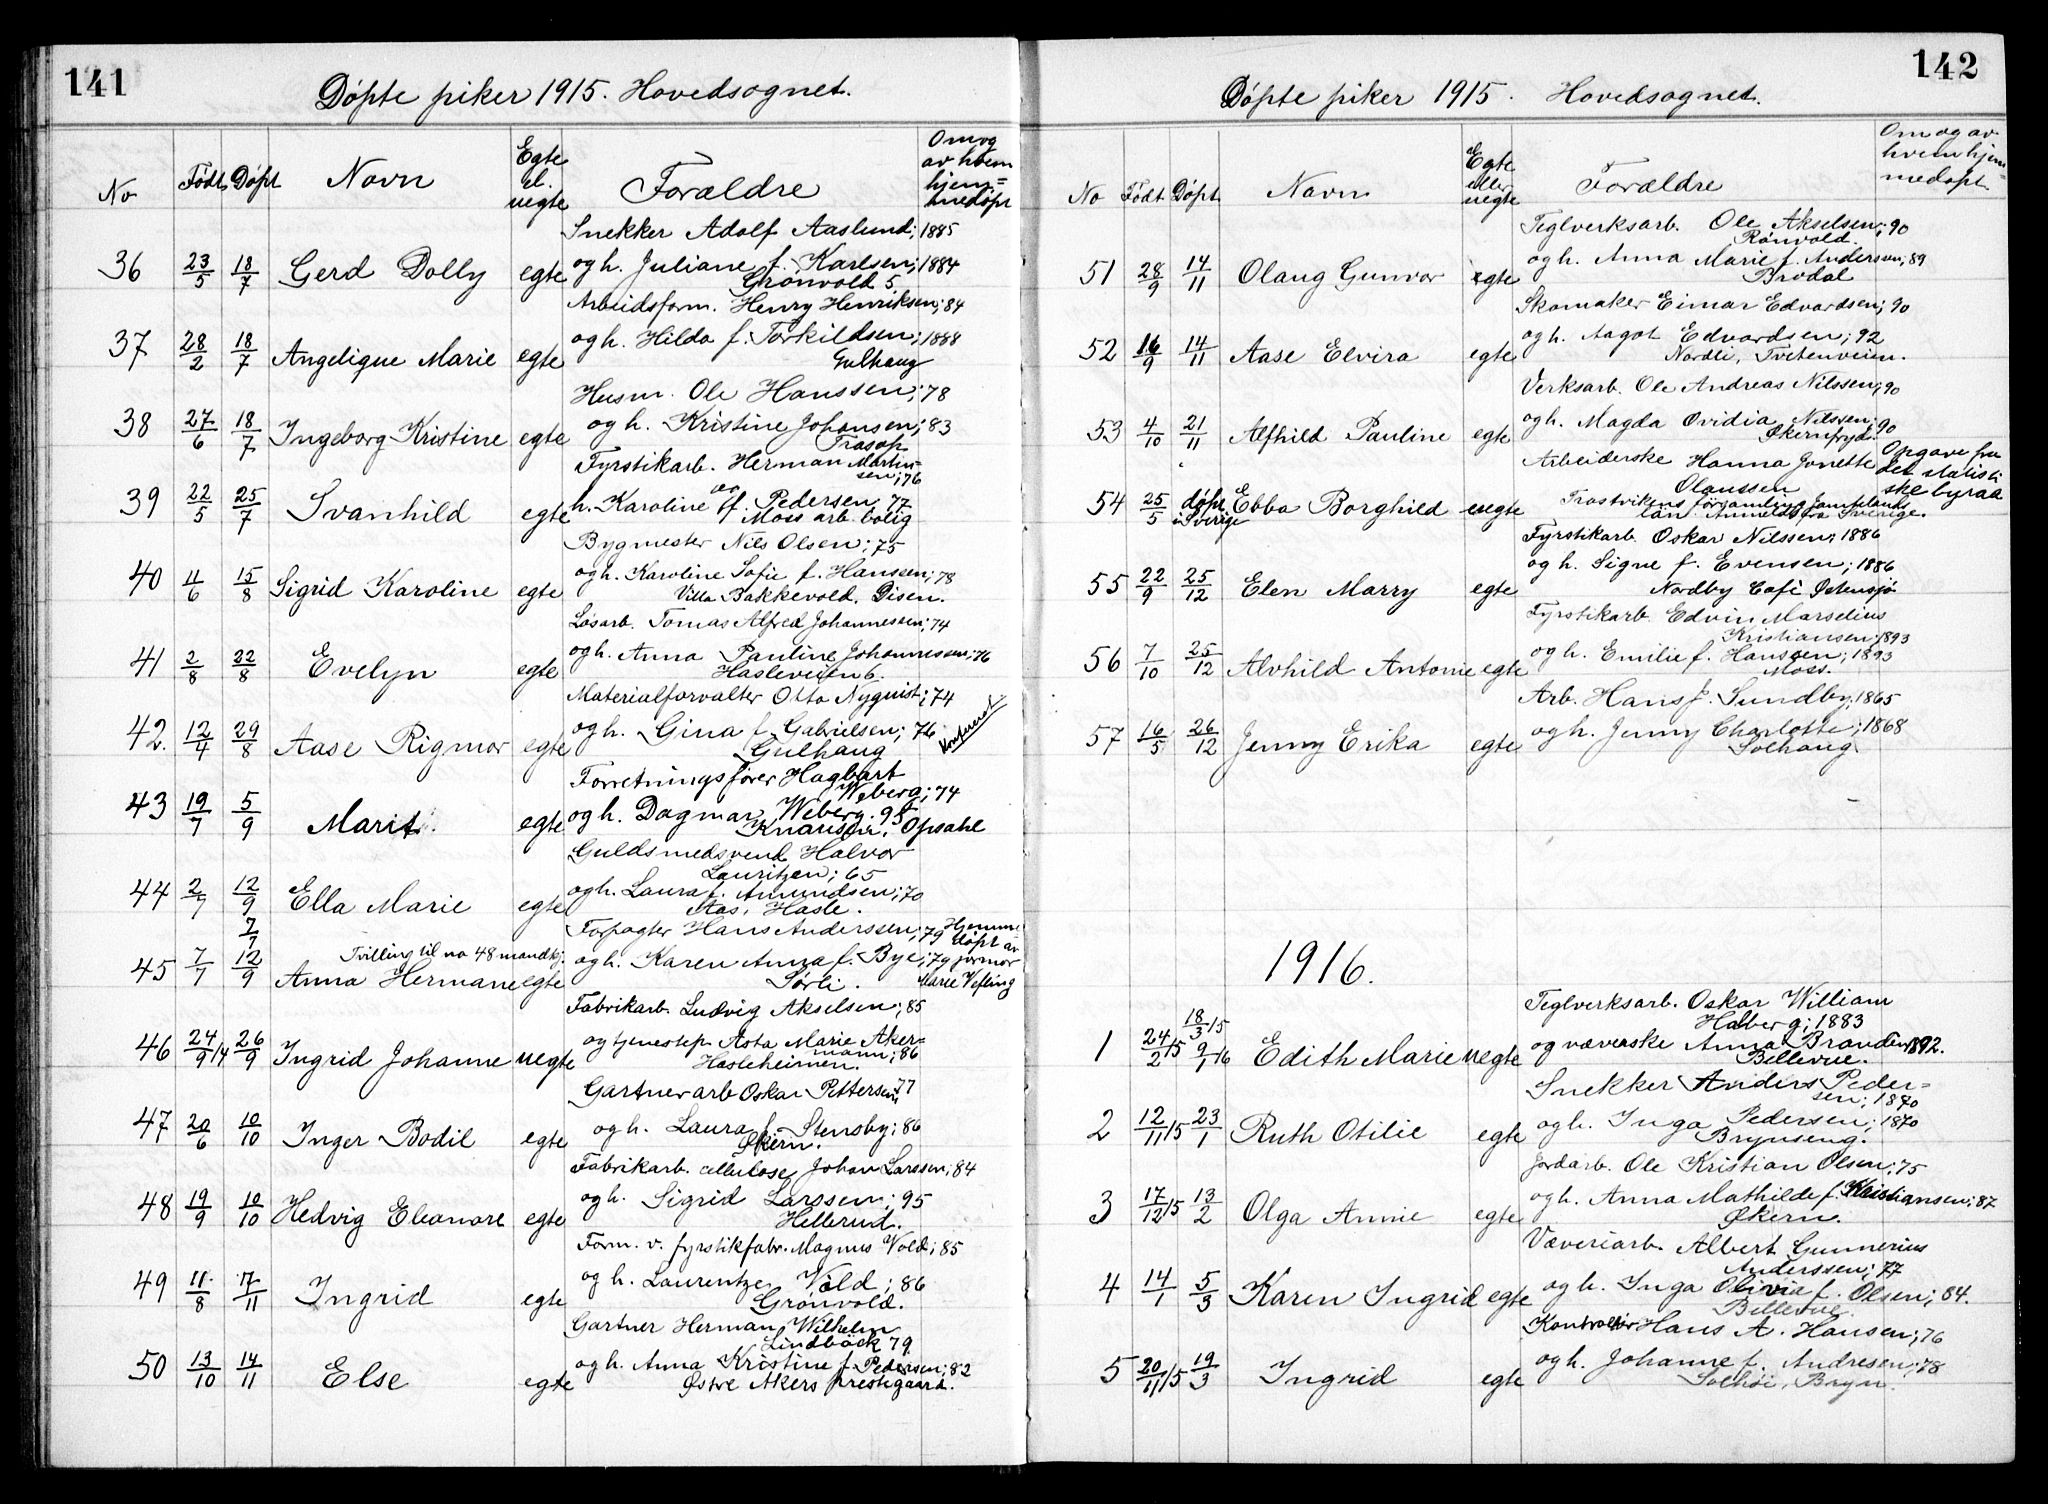 141
Döpte piker 1915. Hovedsognet.
No Födt Döpt Navn Egte el. uegte Forældre Om og av hvem hjem=medöpt
Snekker Adolf Aaslund; 1885
36 23/5 18/7 Gerd Dolly egte og h. Juliane f. Karlsen; 1884
Grönvold 5
Arbeidsform. Henry Henriksen; 84
37 28/2 18/7 Angelique Marie egte og h. Hilda f. Torkildsen; 1888
Gulhaug
Husm. Ole Hanssen; 78
38 27/6 18/7 Ingeborg Kristine egte og h. Kristine Johansen; 83
Trasop
Fyrstikarb. Herman Martin=
sen; 76
39 22/5 25/7 Svanhild egte h. Karoline f. Pedersen 77
Moss arb. bolig
Bygmester Nils Olsen; 75
40 4/6 15/8 Sigrid Karoline egte og h. Karoline Sofie f. Hanssen; 78
Villa Bakkevold. Disen.
Løsarb. Tomas Alfred Johannessen; 74
41 2/8 22/8 Evelyn egte og h. Anna Pauline Johannessen; 76
Hasleveien 6.
Materialforvalter Otto Nyquist; 74
42. 12/4 29/8 Aase Rigmor egte og h. Gina f. Gabrielsen; 76
Gulhaug
Forretningsförer Hagbart
Weberg; 74
43 19/7 5/9 Marit. egte og h. Dagmar Weberg. 95
Opsahl
Guldsmedsvend Halvor
Lauritzen; 65
44 2/7 12/9 Ella Marie egte og h. Laura f. Amundsen; 70
Aas, Hasle.
7/7 Forpagter Hans Anderssen; 79 Hjemme
döpt av
Tvilling til no 48 mandkj.
45 7/7 12/9 Anna Hermane egte og h. Karen Anna f. Bye; 79 jormor
Sörli. Marie Vefling
Fabrikarb. Ludvig Akselsen; 85
46 24/9/14 26/9 Ingrid Johanne uegte og tjenestep. Asta Marie Aker=
mann; 86
Hasleheimen.
Gartnerarb Oskar Pettersen; 77
47 20/6 10/10 Inger Bodil egte og h. Laura f. Stensby; 86
Økern.
Fabrikarb. cellulose, Johan Larssen; 84
48 19/9 10/10 Hedvig Eleonore egte og h. Sigrid Larssen; 95
Hellerud.
Form. v. fyrstikfabr. Magnus Vold; 85
49 11/8 7/11 Ingrid egte og h. Laurentze Vold; 86
Grönvold.
Gartner Herman Wilhelm
Lindbäck 79
50 13/10 14/11 Else egte og h. Anna Kristine f. Pedersen; 82
Østre Akers prestegaard.
142
Döpte piker 1915. Hovedsognet.
No Födt Döpt Navn Egte eller uegte Forældre Om og av hvem hjem=medöpt
Teglverksarb. Ole Akselsen; 90
Rönvold.
51 28/9 14/11 Olaug Gunvor egte og h. Anna Marie f. Andersen; 89
Brodal
Skomaker Eimar Edvardsen; 90
52 16/9 14/11 Aase Elvira egte og h. Aagot Edvardsen; 92
Nordli, Tvetenveien.
Verksarb. Ole Andreas Nilssen; 90
53 4/10 21/11 Alfhild Pauline egte og h. Magda Ovidia Nilssen; 90
Økernfryd.
Arbeiderske Hanna Jonette Opgave fra
det statisti
ske byraa
Olaussen
54 25/5 döpt i Sverige Ebba Borghild uegte Trastvikens församling Jämtlands
län. Anmeldt fra Sverige.
Fyrstikarb. Oskar Nilssen; 1886
55 22/9 25/12 Elen Marry egte og h. Signe f. Evensen; 1886
Nordby Café Østensjö
Fyrstikarb. Edvin Marselius
Kristiansen; 1893
56 7/10 25/12 Alvhild Antonie egte og h. Emilie f. Hansen; 1893
Moss.
Arb. Hans f. Sundby; 1865
57 16/5 26/12 Jenny Erika egte og h. Jenny Charlotte; 1868
Solhaug.
1916.
Teglverksarb. Oskar William
Halberg; 1883
18/3/15
1 24/2/15 9/1/16 Edith Marie uegte og væverske Anna Branden 1892.
Bellevue.
Snekker Anders Peder=
sen; 1870
2 12/11/15 23/1 Ruth Otilie egte og h. Inga Pedersen; 1870
Brynseng.
Jordarb. Ole Kristian Olsen; 75
3 17/12/15 13/2 Olga Annie egte og h. Anna Mathilde f. Kristiansen; 87
Økern.
Væveriarb. Albert Gunnerius
Anderssen; 77
4 14/1 5/3 Karen Ingrid egte og h. Inga Olivia f. Olsen; 84.
Bellevue.
Kontrollör Hans A. Hansen; 76
5 20/11/15 19/3 Ingrid egte og h. Johanne f. Andresen; 78
Solhöi, Bryn.